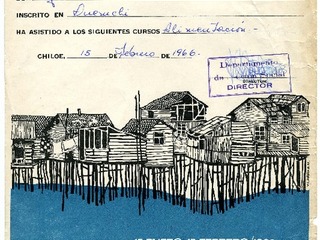 INSCRITO EN Quemchi
HA ASISTIDO A LOS SIGUIENTES CURSOS Alimentación -
CHILOE, 15 DE Febrero de 1966.-
Departamento
de
DIRECTOR